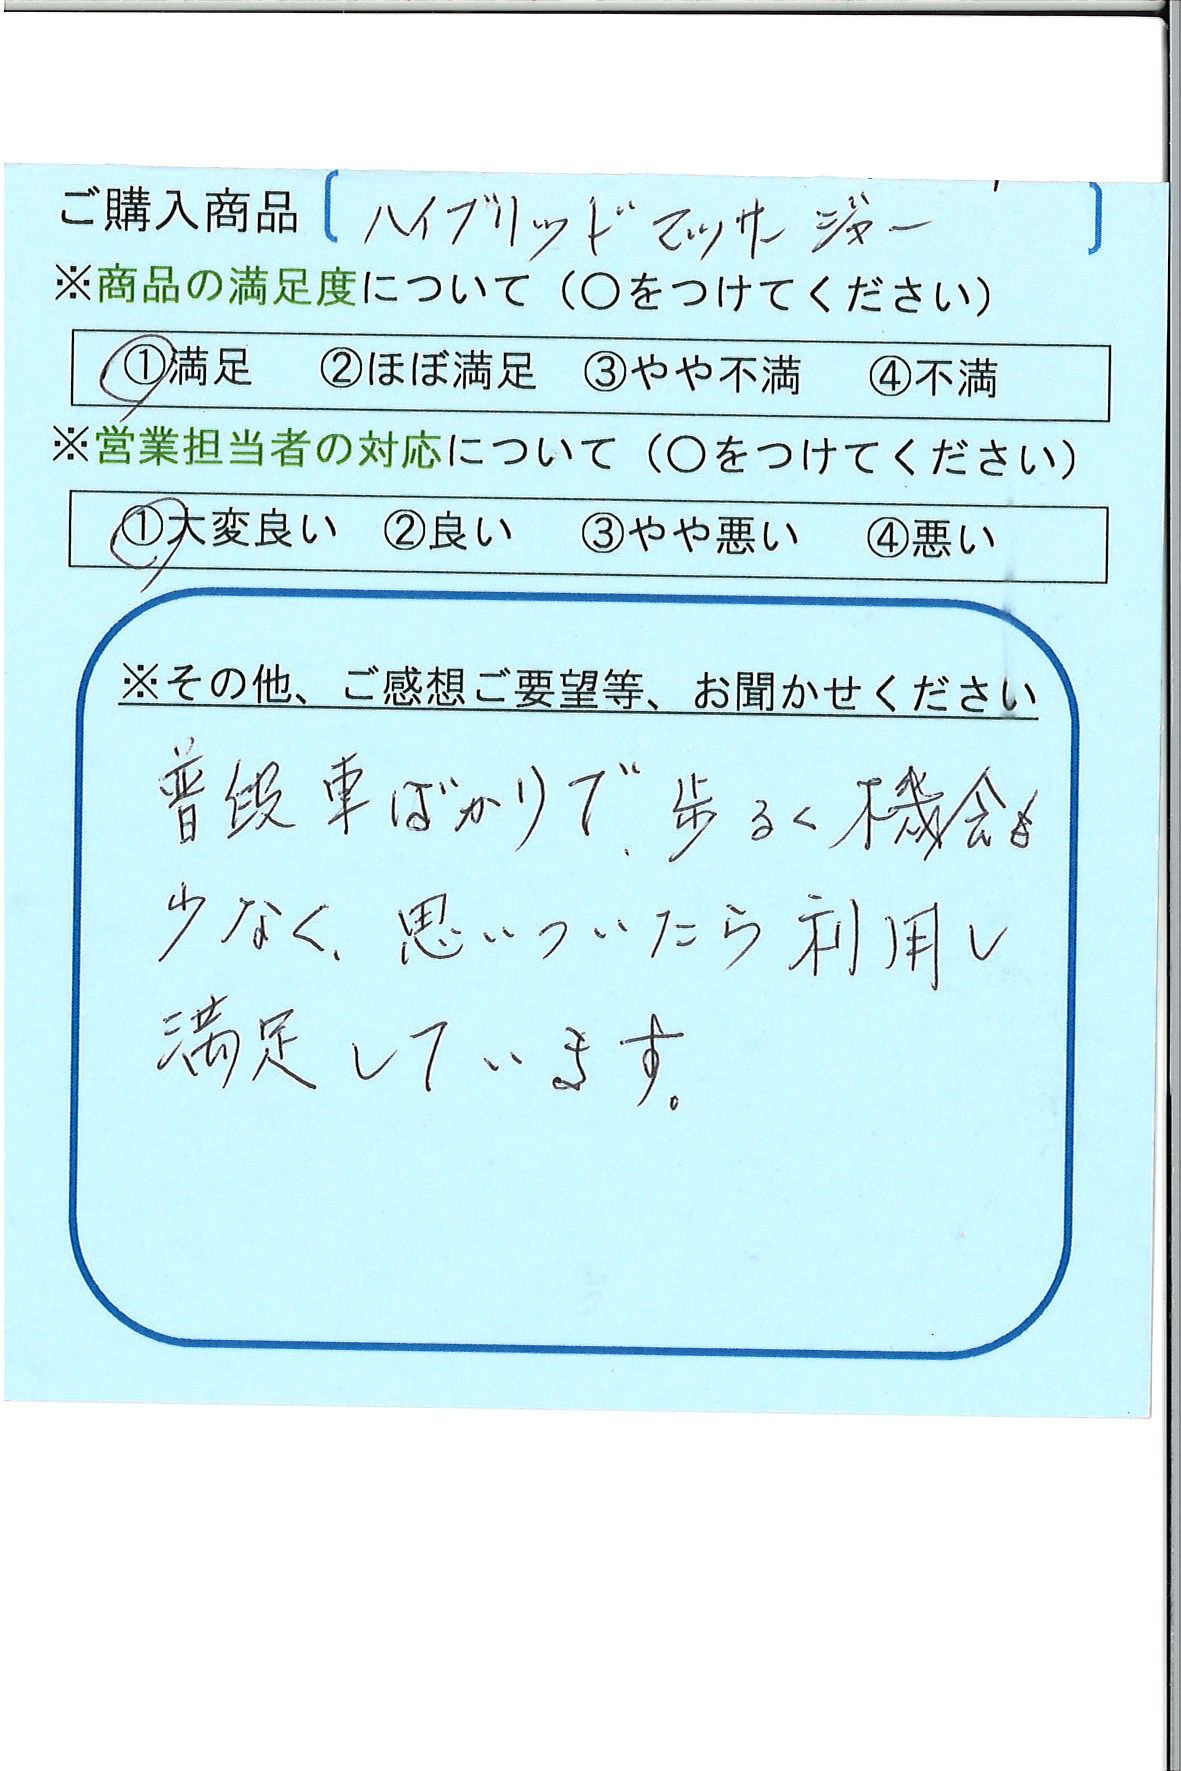 ご購入商品〔ハイブリッドマッサージャー〕
※商品の満足度について（〇をつけてください）
①満足 ②ほぼ満足 ③やや不満 ④不満
※営業担当者の対応について（〇をつけてください）
①大変良い ②良い ③やや悪い ④悪い
※その他、ご感想ご要望等、お聞かせください
普段車ばかりで、歩るく機会も
少なく、思いついたら利用し
満足しています。